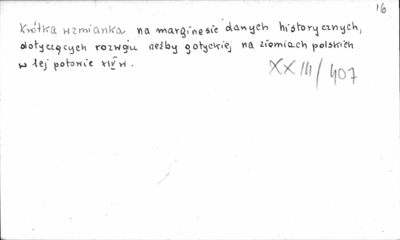 16
Krótka wzmianka na marginesie danych historycznych,
dotyczących rozwoju rzeźby gotyckiej na ziemiach polskich
w 1ej połowie XIV w.
XXIII/407